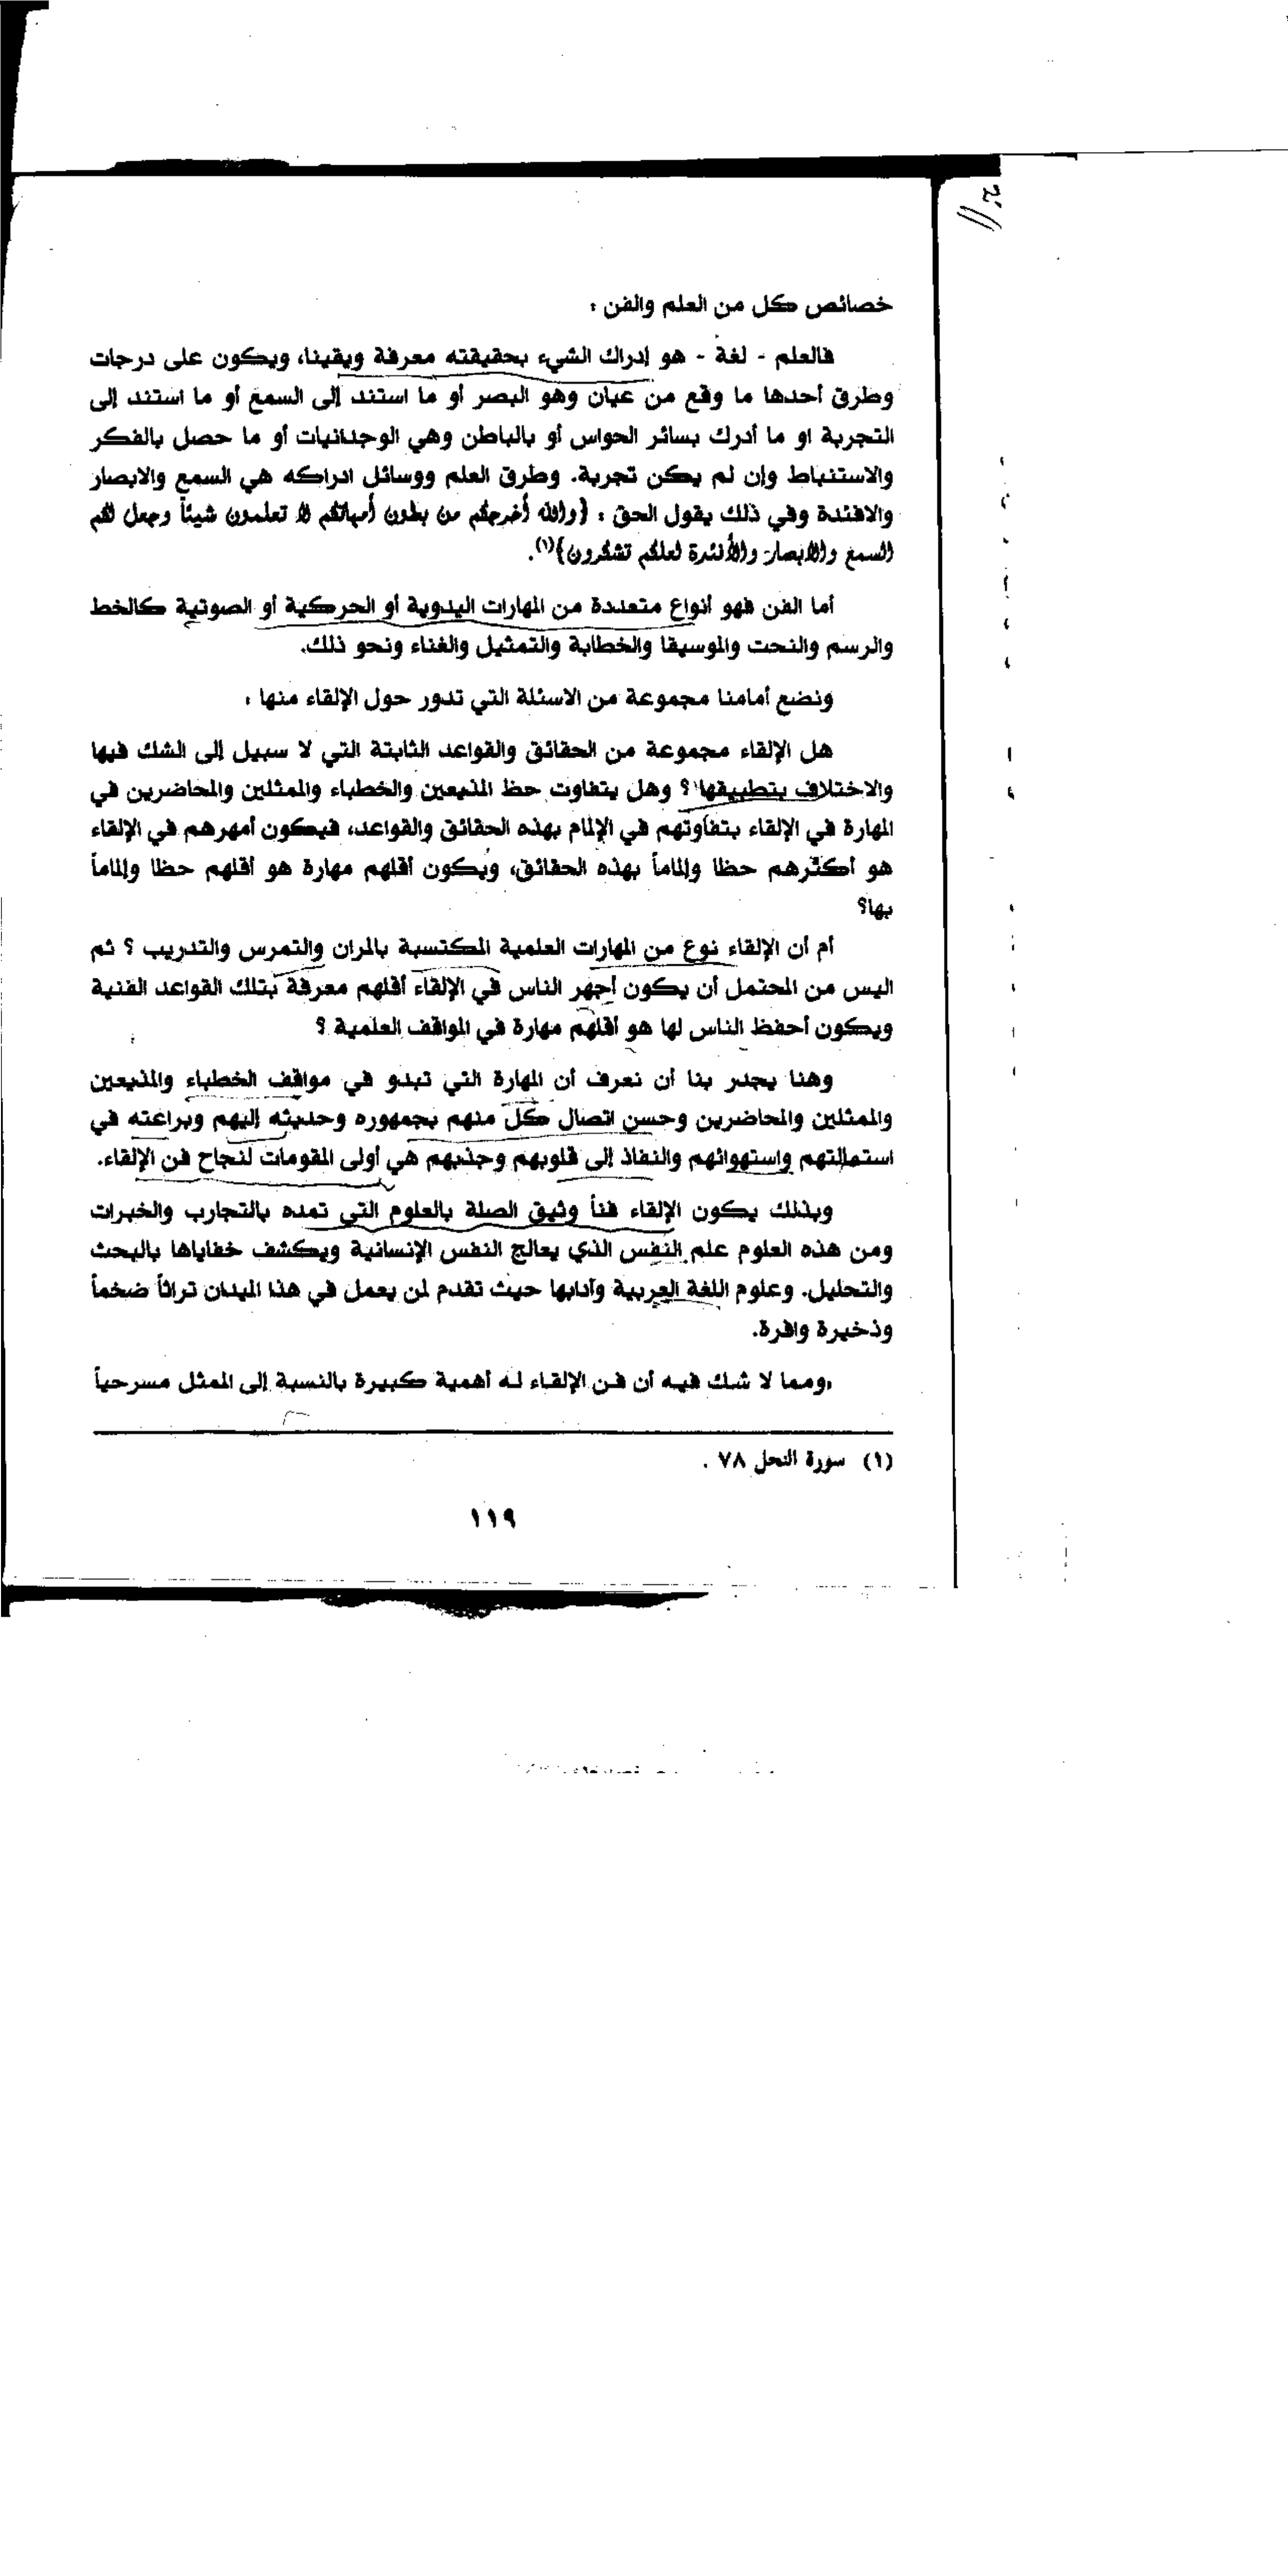 خصائص كل من العلم والفن :
فالعلم - لغة - هو إدراك الشيء بحقيقته معرفة ويقينا، ويكون على درجات
وطرق أحدها ما وقع من عيان وهو البصر أو ما استند إلى السمع أو ما استند إلى
التجربة او ما أدرك بسائر الحواس أو بالباطن وهي الوجدانيات أو ما حصل بالفكر
والاستنباط وإن لم يكن تجربة. وطرق العلم ووسائل ادراكه هي السمع والابصار
والافئدة وفي ذلك يقول الحق : {والله أخرجكم من بطون أمهاتكم لا تعلمون شيئاً وجعل لكم
السمع والأبصار والأفئدة لعلكم تشكرون}(١).
أما الفن فهو أنواع متعددة من المهارات اليدوية أو الحركية أو الصوتية كالخط
والرسم والنحت والموسيقا والخطابة والتمثيل والغناء ونحو ذلك.
ونضع أمامنا مجموعة من الاسئلة التي تدور حول الإلقاء منها :
هل الإلقاء مجموعة من الحقائق والقواعد الثابتة التي لا سبيل إلى الشك فيها
والاختلاف بتطبيقها ؟ وهل يتفاوت حظ المذيعين والخطباء والممثلين والمحاضرين في
المهارة في الإلقاء بتفاوتهم في الإلمام بهذه الحقائق والقواعد، فيكون أمهرهم في الإلقاء
هو أكثرهم حظا وإلماماً بهذه الحقائق، ويكون أقلهم مهارة هو أقلهم حظا وإلماماً
بها؟
أم أن الإلقاء نوع من المهارات العلمية المكتسبة بالمران والتمرس والتدريب ؟ ثم
اليس من المحتمل أن يكون أجهر الناس في الإلقاء أقلهم معرفة بتلك القواعد الفنية
ويكون أحفظ الناس لها هو أقلهم مهارة في المواقف العلمية ؟
وهنا يجدر بنا أن نعرف أن المهارة التي تبدو في مواقف الخطباء والمذيعين
والممثلين والمحاضرين وحسن اتصال كل منهم بجمهوره وحديثه إليهم وبراعته في
استمالتهم واستهوائهم والنفاذ إلى قلوبهم وجذبهم هي أولى المقومات لنجاح فن الإلقاء.
وبذلك يكون الإلقاء فناً وثيق الصلة بالعلوم التي تمده بالتجارب والخبرات
ومن هذه العلوم علم النفس الذي يعالج النفس الإنسانية ويكشف خفاياها بالبحث
والتحليل. وعلوم اللغة العربية وآدابها حيث تقدم لمن يعمل في هذا الميدان تراثاً ضخماً
وذخيرة وافرة.
ومما لا شك فيه أن فن الإلقاء له أهمية كبيرة بالنسبة إلى الممثل مسرحياً
(١) سورة النحل ٧٨ .
١١٩